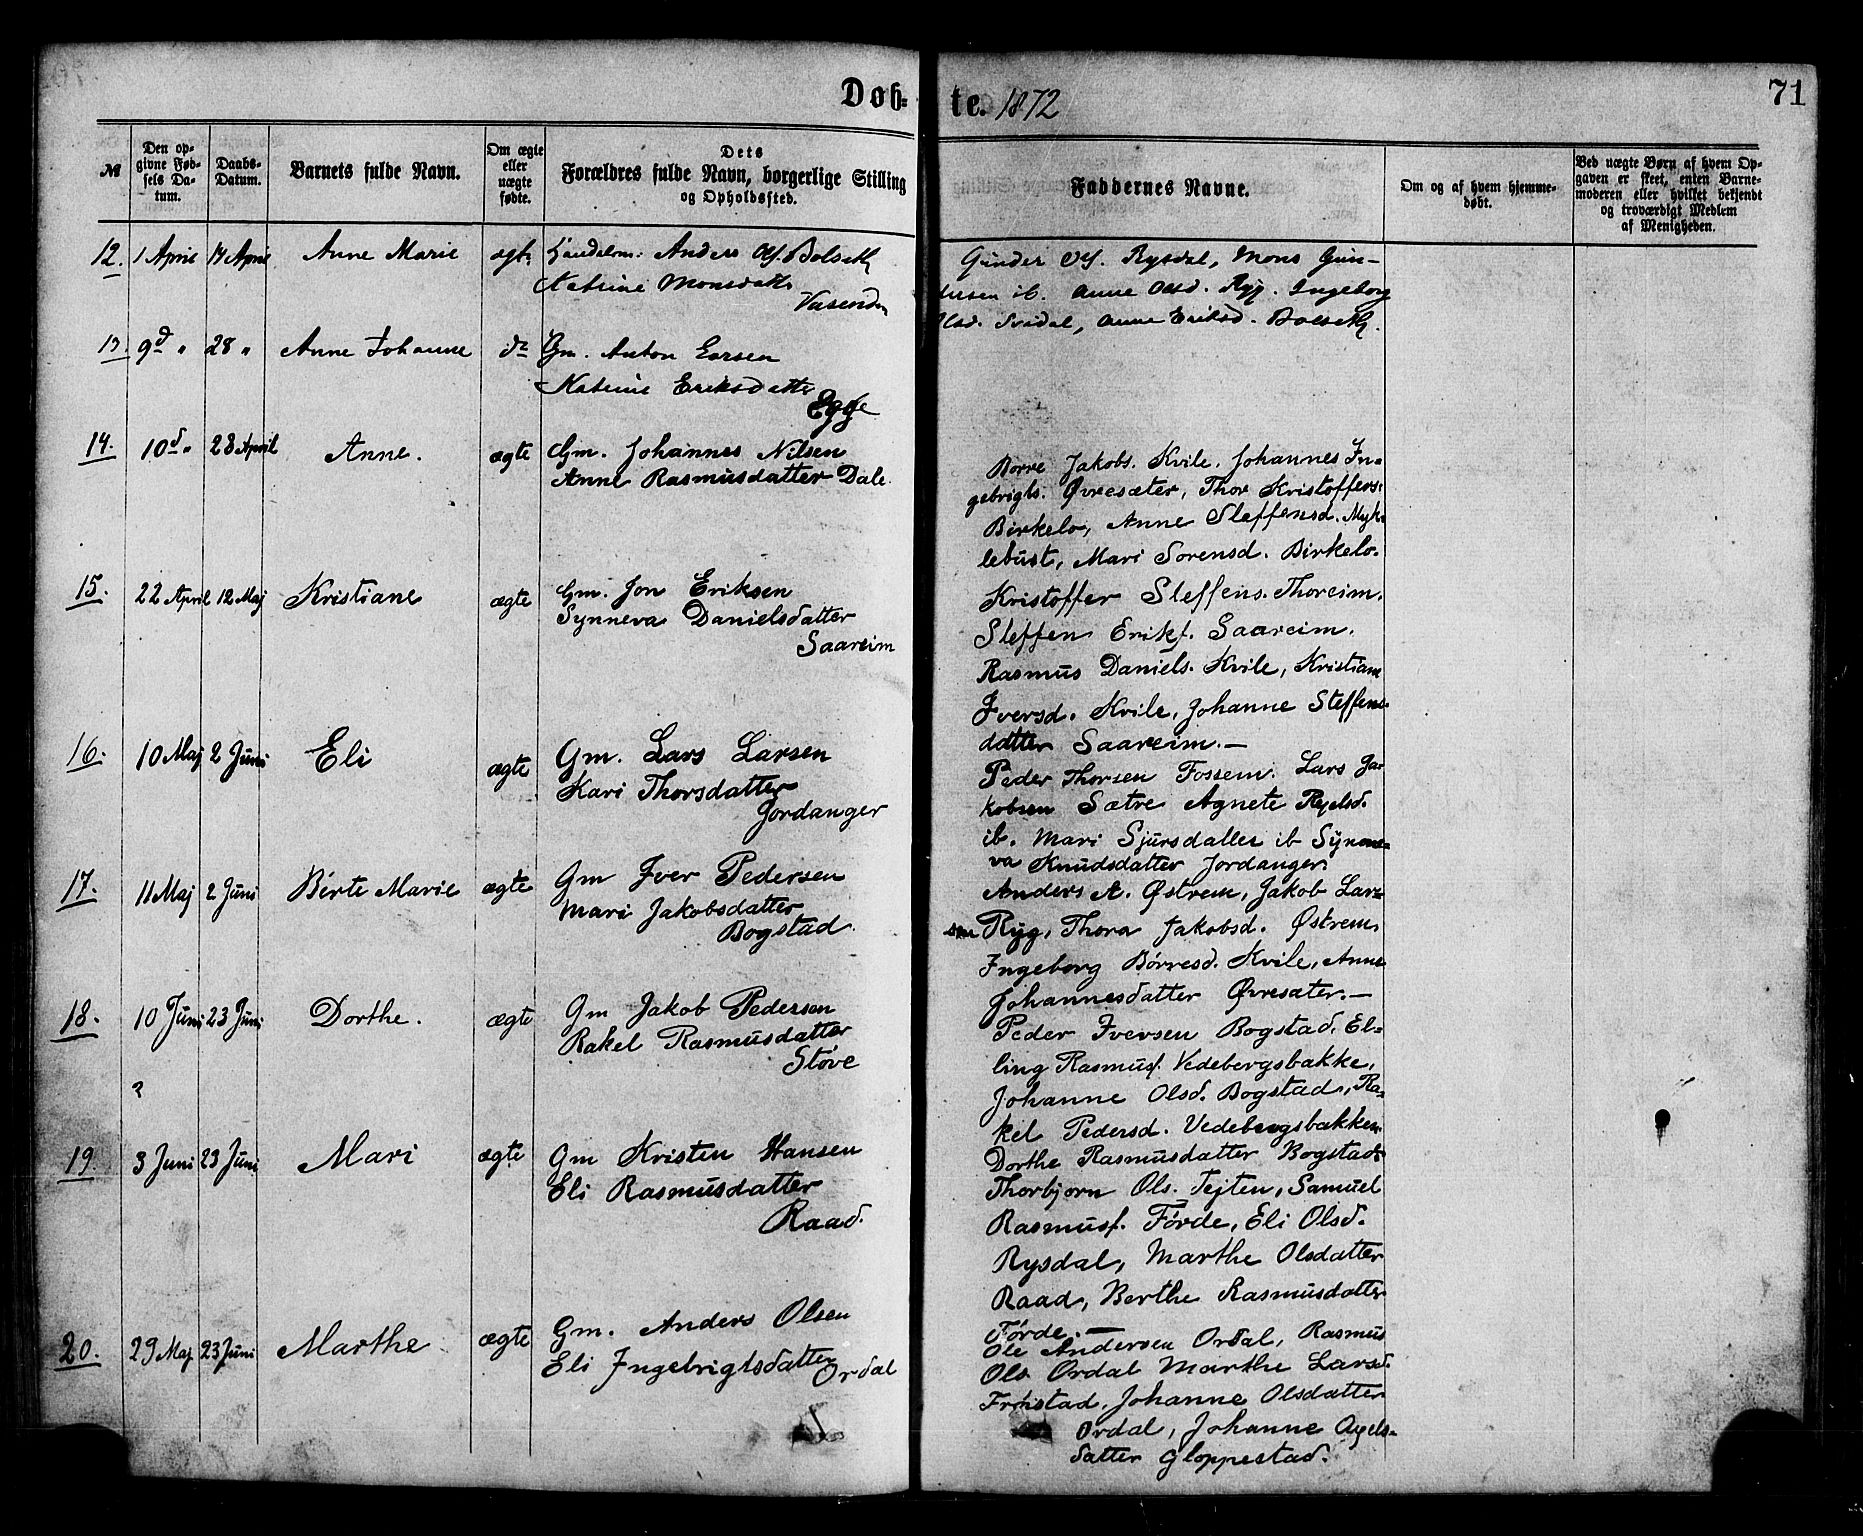 Döb-
te. 1872
71
№
Den op-
givne Fød-
sels Da-
tum.
Daabs-
Datum.
Barnets fulde Navn.
Om ægte
eller
uægte
fødte.
Dets
Forældres fulde Navn, borgerlige Stilling
og Opholdssted.
Faddernes Navne.
Om og af hvem hjemme-
døbt.
Ved uægte Børn af hvem Op-
gaven er skeet, enten Barne-
moderen eller hvilket bekjendt
og troværdigt Medlem
af Menigheden.
12. 1 April 14 April Anne Marie Anders Ols. Bolseth
Katrine Monsdatt.
Vasenden
Gunder Ols. Rysdal, Mons Gun-
dersen ib. Anne Olsd. Ryg. Ingeborg
Olsd. Svidal, Anne Eriksd. Bolseth.
13 9d " 28 " Anne Johanne do Gm. Anton Larsen
Katrine Eriksdatter
Egge
14. 10d " 28 April Anne. ægte Gm. Johannes Nilsen
Anne Rasmusdatter Dale.
Borre Jakobs. Kvile, Johannes In-
gebrigts. Øvresæter, Thor Kristoffers.
Birkelo, Anne Steffensd. Myk-
lebust, Mari Sorensd. Birkelo.
15. 22 April 12 Maj Kristiane ægte Gm. Jon Eriksen
Synneva Danielsdatter
Saareim
Kristoffer Steffens. Thoreim.
Steffen Eriks. Saareim.
Rasmus Daniels. Kvile, Kristiane
Iversd. Kvile, Johanne Steffens-
datter Saareim.—
16. 10 Maj 2 Juni Eli ægte Gm. Lars Larsen
Kari Thorsdatter
Jordanger
Peder Thorsen Fossem. Lars Ja-
kobsen Sætre Agnete Ryelsd.
ib. Mari Sjursdatter ib Synne-
va Knudsdatter Jordanger.
17. 11 Maj 2 Juni Birte Marie ægte Gm Iver Pedersen
Mari Jakobsdatter
Bogstad.
Anders A. Østrem, Jakob Lar-
sen Ryg, Thora Jakobsd. Østrem,
Ingeborg Børresd. Kvile, Anne
Johannesdatter Øvresæter.—
18. 10 Juni 23 Juni Dorthe. ægte Gm Jakob Pedersen
Rakel Rasmusdatter
Støve
?
Peder Iversen Bogstad, El-
ling Rasmus. Vedebergsbakke,
Johanne Olsd. Bogstad, Ra-
kel Pedersd. Vedebergsbakken
Dorthe Rasmusdatter Bogstad.
19 3 Juni 23 Juni Mari ægte Gm Kristen Hansen
Eli Rasmusdatter
Raad.
Thorbjørn Ols. Tejten, Samuel
Rasmus. Førde, Eli Olsd.
Rysdal, Marthe Olsdatter
Raad, Berthe Rasmusdatter
Førde.—
20. 29 Maj 23 Juni Marthe ægte Gm. Anders Olsen
Eli Ingebrigtsdatter
Ordal
Ole Andersen Ordal, Rasmus
Ols. Ordal Marthe Larsd.
Frøistad, Johanne Olsdatter
Ordal, Johanne Agels-
datter Gloppestad.